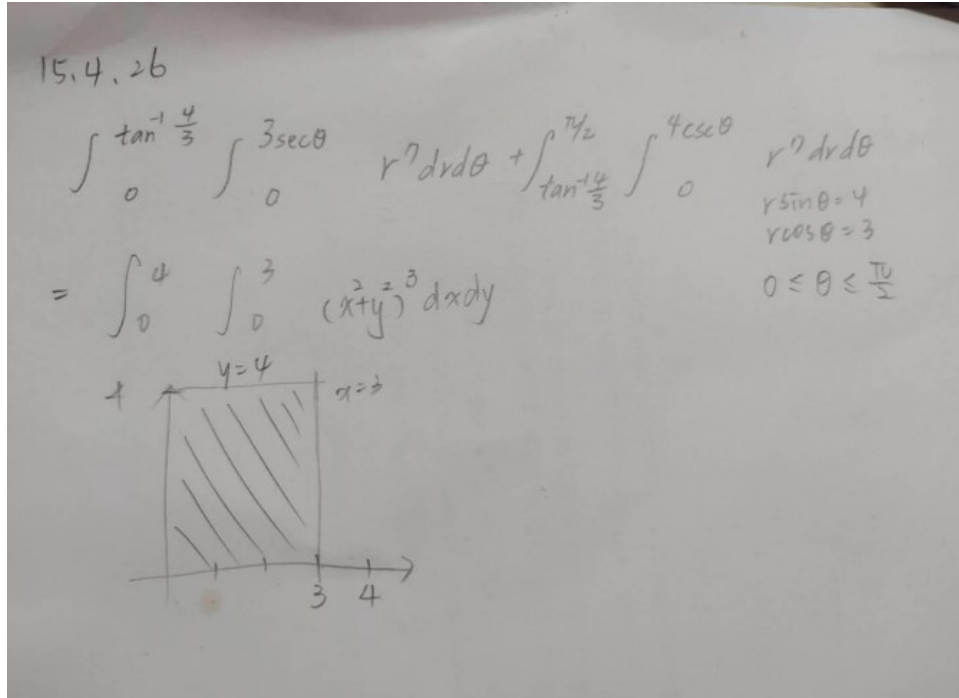 15.4.26
∫₀^{tan⁻¹ 4/3} ∫₀^{3secθ} r⁷ drdθ + ∫_{tan⁻¹ 4/3}^{π/2} ∫₀^{4cscθ} r⁷ drdθ
r sinθ = 4
r cosθ = 3
= ∫₀⁴ ∫₀³ (x²+y²)³ dxdy
0 ≤ θ ≤ π/2
y=4
4
x=3
3 4